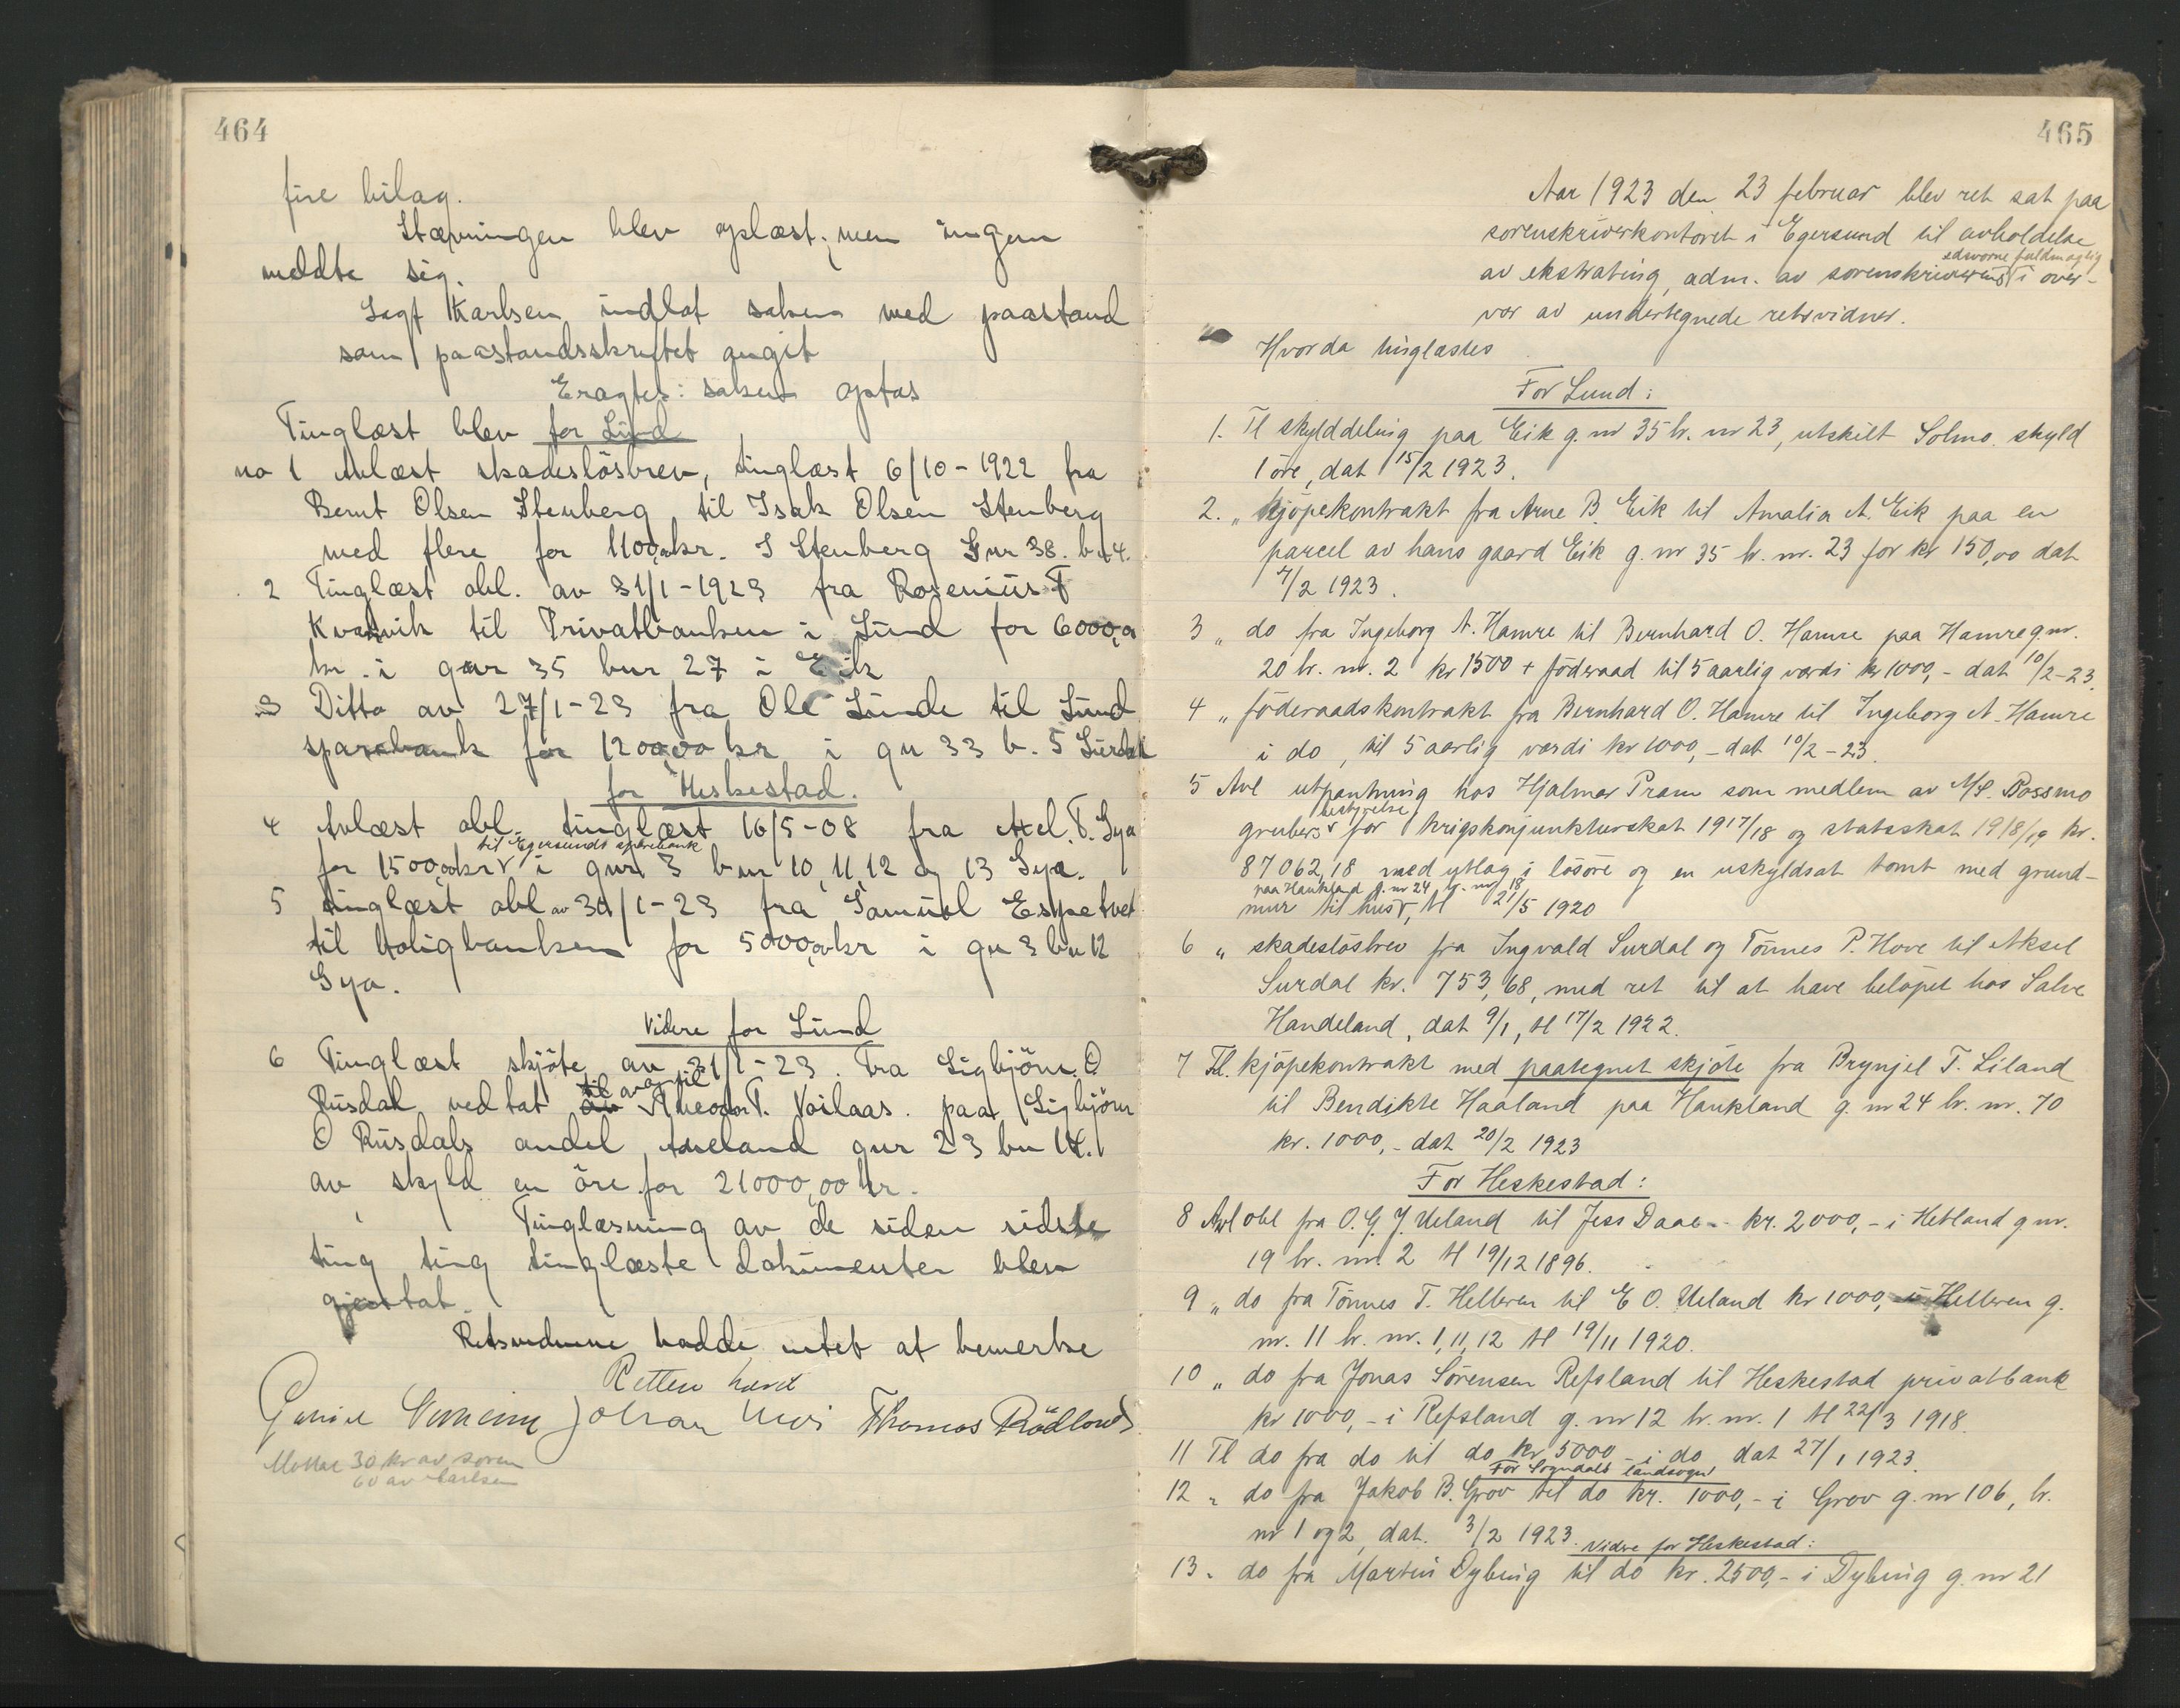 464
fire bilag.
Stævningen blev oplæst, men ingen
meldte sig.
Sagf Karlsen indlot saken med paastand
som paastandsskriftet angit
Eragtes: saken optas
Tinglæst blev for Lund
no 1 Avlæst skadeslösbrev, tinglæst 6/10-1922 fra
Bernt Olsen Stenberg til Isak Olsen Stenberg
med flere for 1100,00kr. I Stenberg Gnr 38. b.4.
2 Tinglæst obl. av 31/1-1923 fra Rosenius T
Kvasvik til Privatbanken i Lund for 6000,00
kr. i gnr 35 bnr 27 i Eik
3 Ditto av 27/1-23 fra Ole Lunde til Lund
sparebank for 12000,00 kr i gn 33 b. 5 Surdal
for Heskestad.
4 Avlæst obl. tinglæst 16/5-08 fra Axel. T. Gya
til Egersunds sparebank
for 1500,00kr i gnr 3 bnr 10, 11, 12 og 13 Gya.
5 tinglæst obl av 30/1-23 fra Samuel Espetvet
til Boligbanken for 5000,00kr i gn 3 bn 12
Gya.
Videre for Lund
6 Tinglæst skjöte av 31/1-23. Fra Sigbjörn. O
Rusdal ved tat til Theodor T. Voilaas. paa Sigbjörn
O Rusdals andel Aneland gnr 23 bn 14.
av skyld en öre for 21000,00 kr.
Tinglæsning av de siden sidste
ting ting tinglæste dokumenter blev
gjentat.
Retsvidnerne hadde intet at bemerke
Retten hævet
Johan Moi Thomas Rödland
Mottat 30 kr av soren
60 av Carlsen
465
Aar 1923 den 23 februar blev ret sat paa
sorenskriverkontoret i Egersund til avholdelse
edsvorne fuldmægtig
av ekstrating, adm. av sorenskriverens i over-
vær av undertegnede retsvidner.
Hvorda tinglæstes
For Lund:
1. Tl skylddeling paa Eik g. nr 35 br. nr 23, utskilt Solmo. skyld
1 öre, dat 15/2 1923.
2. „ kjöpekontrakt fra Arne B. Eik til Amalia A. Eik paa en
parcel av hans gaard Eik g. nr 35 br. nr. 23 for kr 150,00 dat
7/2 1923.
3 „ do fra Ingeborg A. Hamre til Bernhard O. Hamre paa Hamre g. nr.
20 br. nr. 2 kr 1500 + föderaad til 5 aarlig værdi kr 1000,- dat 10/2-23.
4 „ föderaadskontrakt fra Bernhard O. Hamre til Ingeborg A. Hamre
i do, til 5 aarlig værdi kr 1000,- dat 10/2-23.
5 Avl utpantning hos Hjalmar Pram som medlem av A/S. Bossmo
bestyrelse
grubers for krigskonjunkturskat 1917/18 og statsskat 1918/19 kr.
87062,18 med utlag i lösöre og en uskyldsat tomt med grund-
paa Haukland g. nr 24 br. nr 18
mur til hus, tl 21/5 1920
6 „ skadeslösbrev fra Ingvald Surdal og Tönnes P. Hove til Aksel
Surdal kr. 753,68, med ret til at have belöpet hos Salve
Handeland, dat 9/1, tl 17/2 1922.
7 Tl. kjöpekontrakt med paategnet skjöte fra Brynjel T. Liland
til Bendikte Haaland paa Haukland g. nr 24 br. nr. 70
kr. 1000,- dat 20/2 1923
For Heskestad:
8 Avl obl fra O. G. J. Ueland til Jess Daae - kr. 2000,- i Hetland g nr.
19 br. nr. 2 tl 19/12 1896.
9 „ do fra Tönnes T. Helleren til E O. Ueland kr 1000,- i Helleren g.
nr. 11 br. nr. 1, 11, 12 tl 19/11 1920.
10 „ do fra Jonas Sörensen Refsland til Heskestad privatbank
kr 1000,- i Refsland g. nr 12 br. nr. 1 tl 22/3 1918.
11 Tl do fra do til do kr 5000 - i do dat 27/1 1923.
For Sogndals landsogn
12 „ do fra Jakob B. Grov til do kr. 1000,- i Grov g. nr 106, br.
nr 1 og 2, dat. 3/2 1923.
Videre for Heskestad:
13 „ do fra Martin Dybing til do kr. 2500,- i Dybing g. nr 21